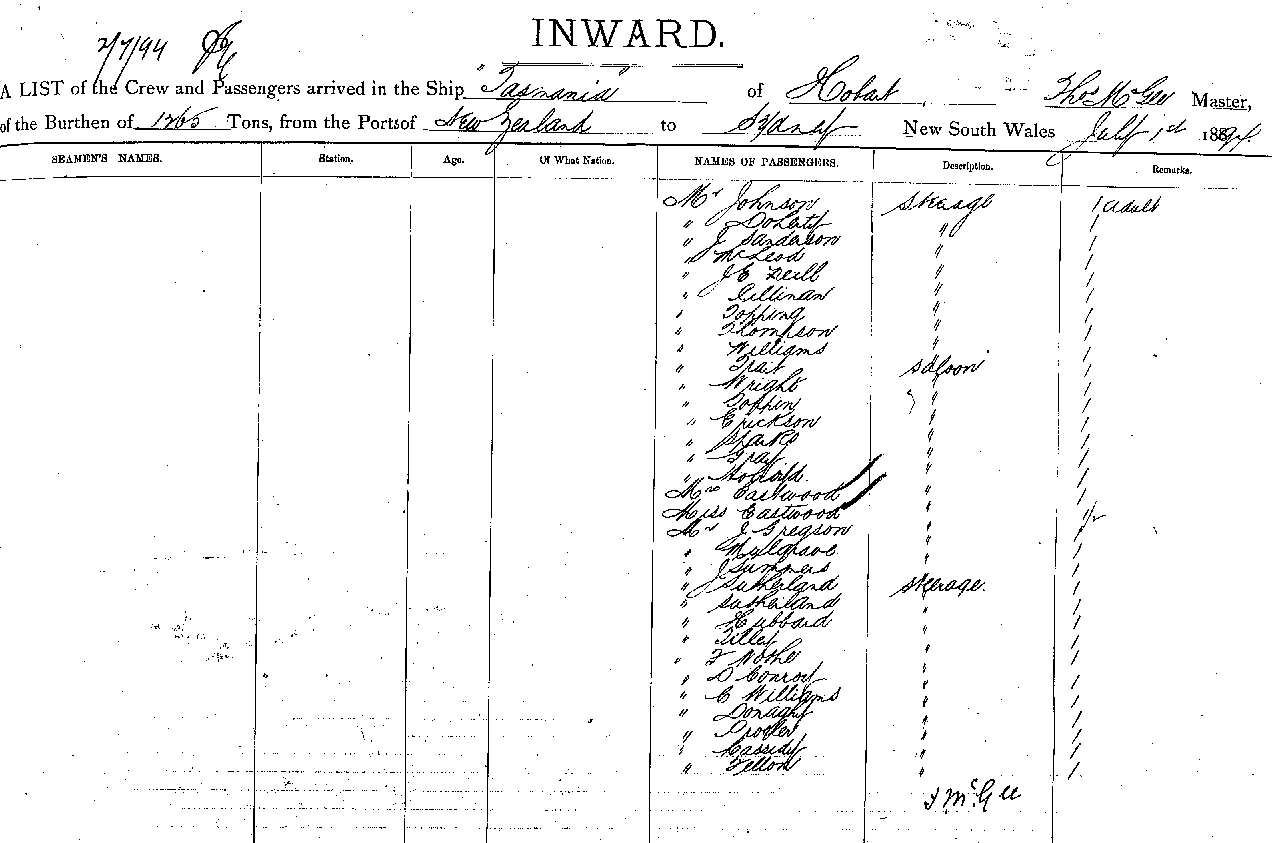 INWARD.
2/7/94
A LIST of the Crew and Passengers arrived in the Ship "Tasmania" of Hobart Thos McGee Master,
of the Burthen of 1265 Tons, from the Ports of New Zealand to Sydney New South Wales July 1st 1894
SEAMEN'S NAMES. Station. Age. Of What Nation. NAMES OF PASSENGERS. Description. Remarks.
Mr Johnson steerage 1 adult
" Doherty " 1
" J Sanderson " 1
" McLeod " 1
" J E Neill " 1
" Cullinan " 1
" Topping " 1
" Thompson " 1
" Williams " 1
" Trait saloon 1
" Wright " 1
" Toppin " 1
" Erickson " 1
" Sparks " 1
" Gray " 1
" "
Mrs Eastwood " 1
Miss Eastwood "
Mr J Gregson " 1
" Mulgrave " 1
" J Summers " 1
" J Sutherland steerage. 1
" Sutherland " 1
" Hubbard " 1
" Tilley " 1
" F " 1
" D Conroy " 1
" C Williams " 1
" Donaghy " 1
" Procter " 1
" Cassidy " 1
" Fellon " 1
T McGee